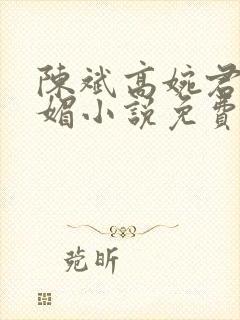 陳斌高婉君
媚小說免費
菀昕